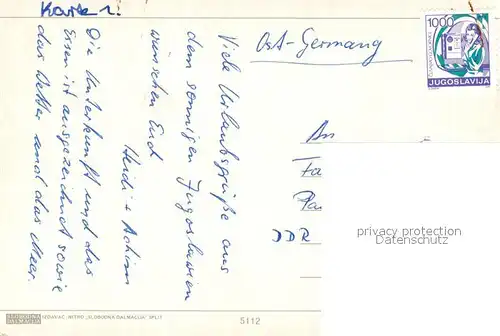 Karte 1.
Viele Urlaubsgrüße aus
dem sonnigen Jugoslawien
wünschen Euch
Heidi + Achim
Die Unterkunft und das
Essen ist ausgezeichnet sowie
das Wetter und das Meer.
Ost-Germany
1000
JUGOSLAVIJA
An
Fa
Pa
DDR
privacy protection
Datenschutz
SLOBODNA
DALMACIJA
IZDAVAČ: NITRO „SLOBODNA DALMACIJA” SPLIT
5112